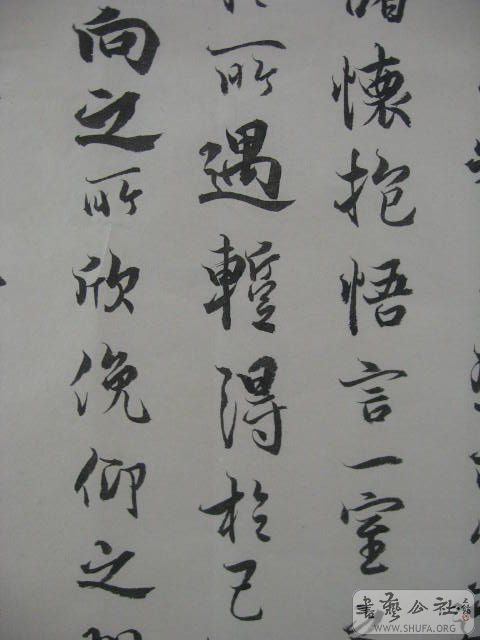 懷抱悟言一室
於所遇暫得於己
向之所欣俛仰之
書藝公社
WWW.SHUFA.ORG